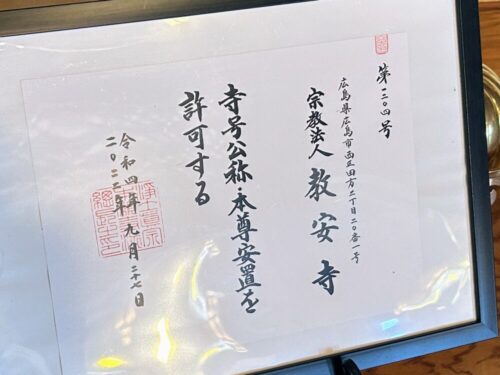 第一二〇四号
広島県広島市西区田方二丁目二〇番一号
宗教法人 教安寺
寺号公称・本尊安置を
許可する
令和四年
二〇二二年 九月二十七日